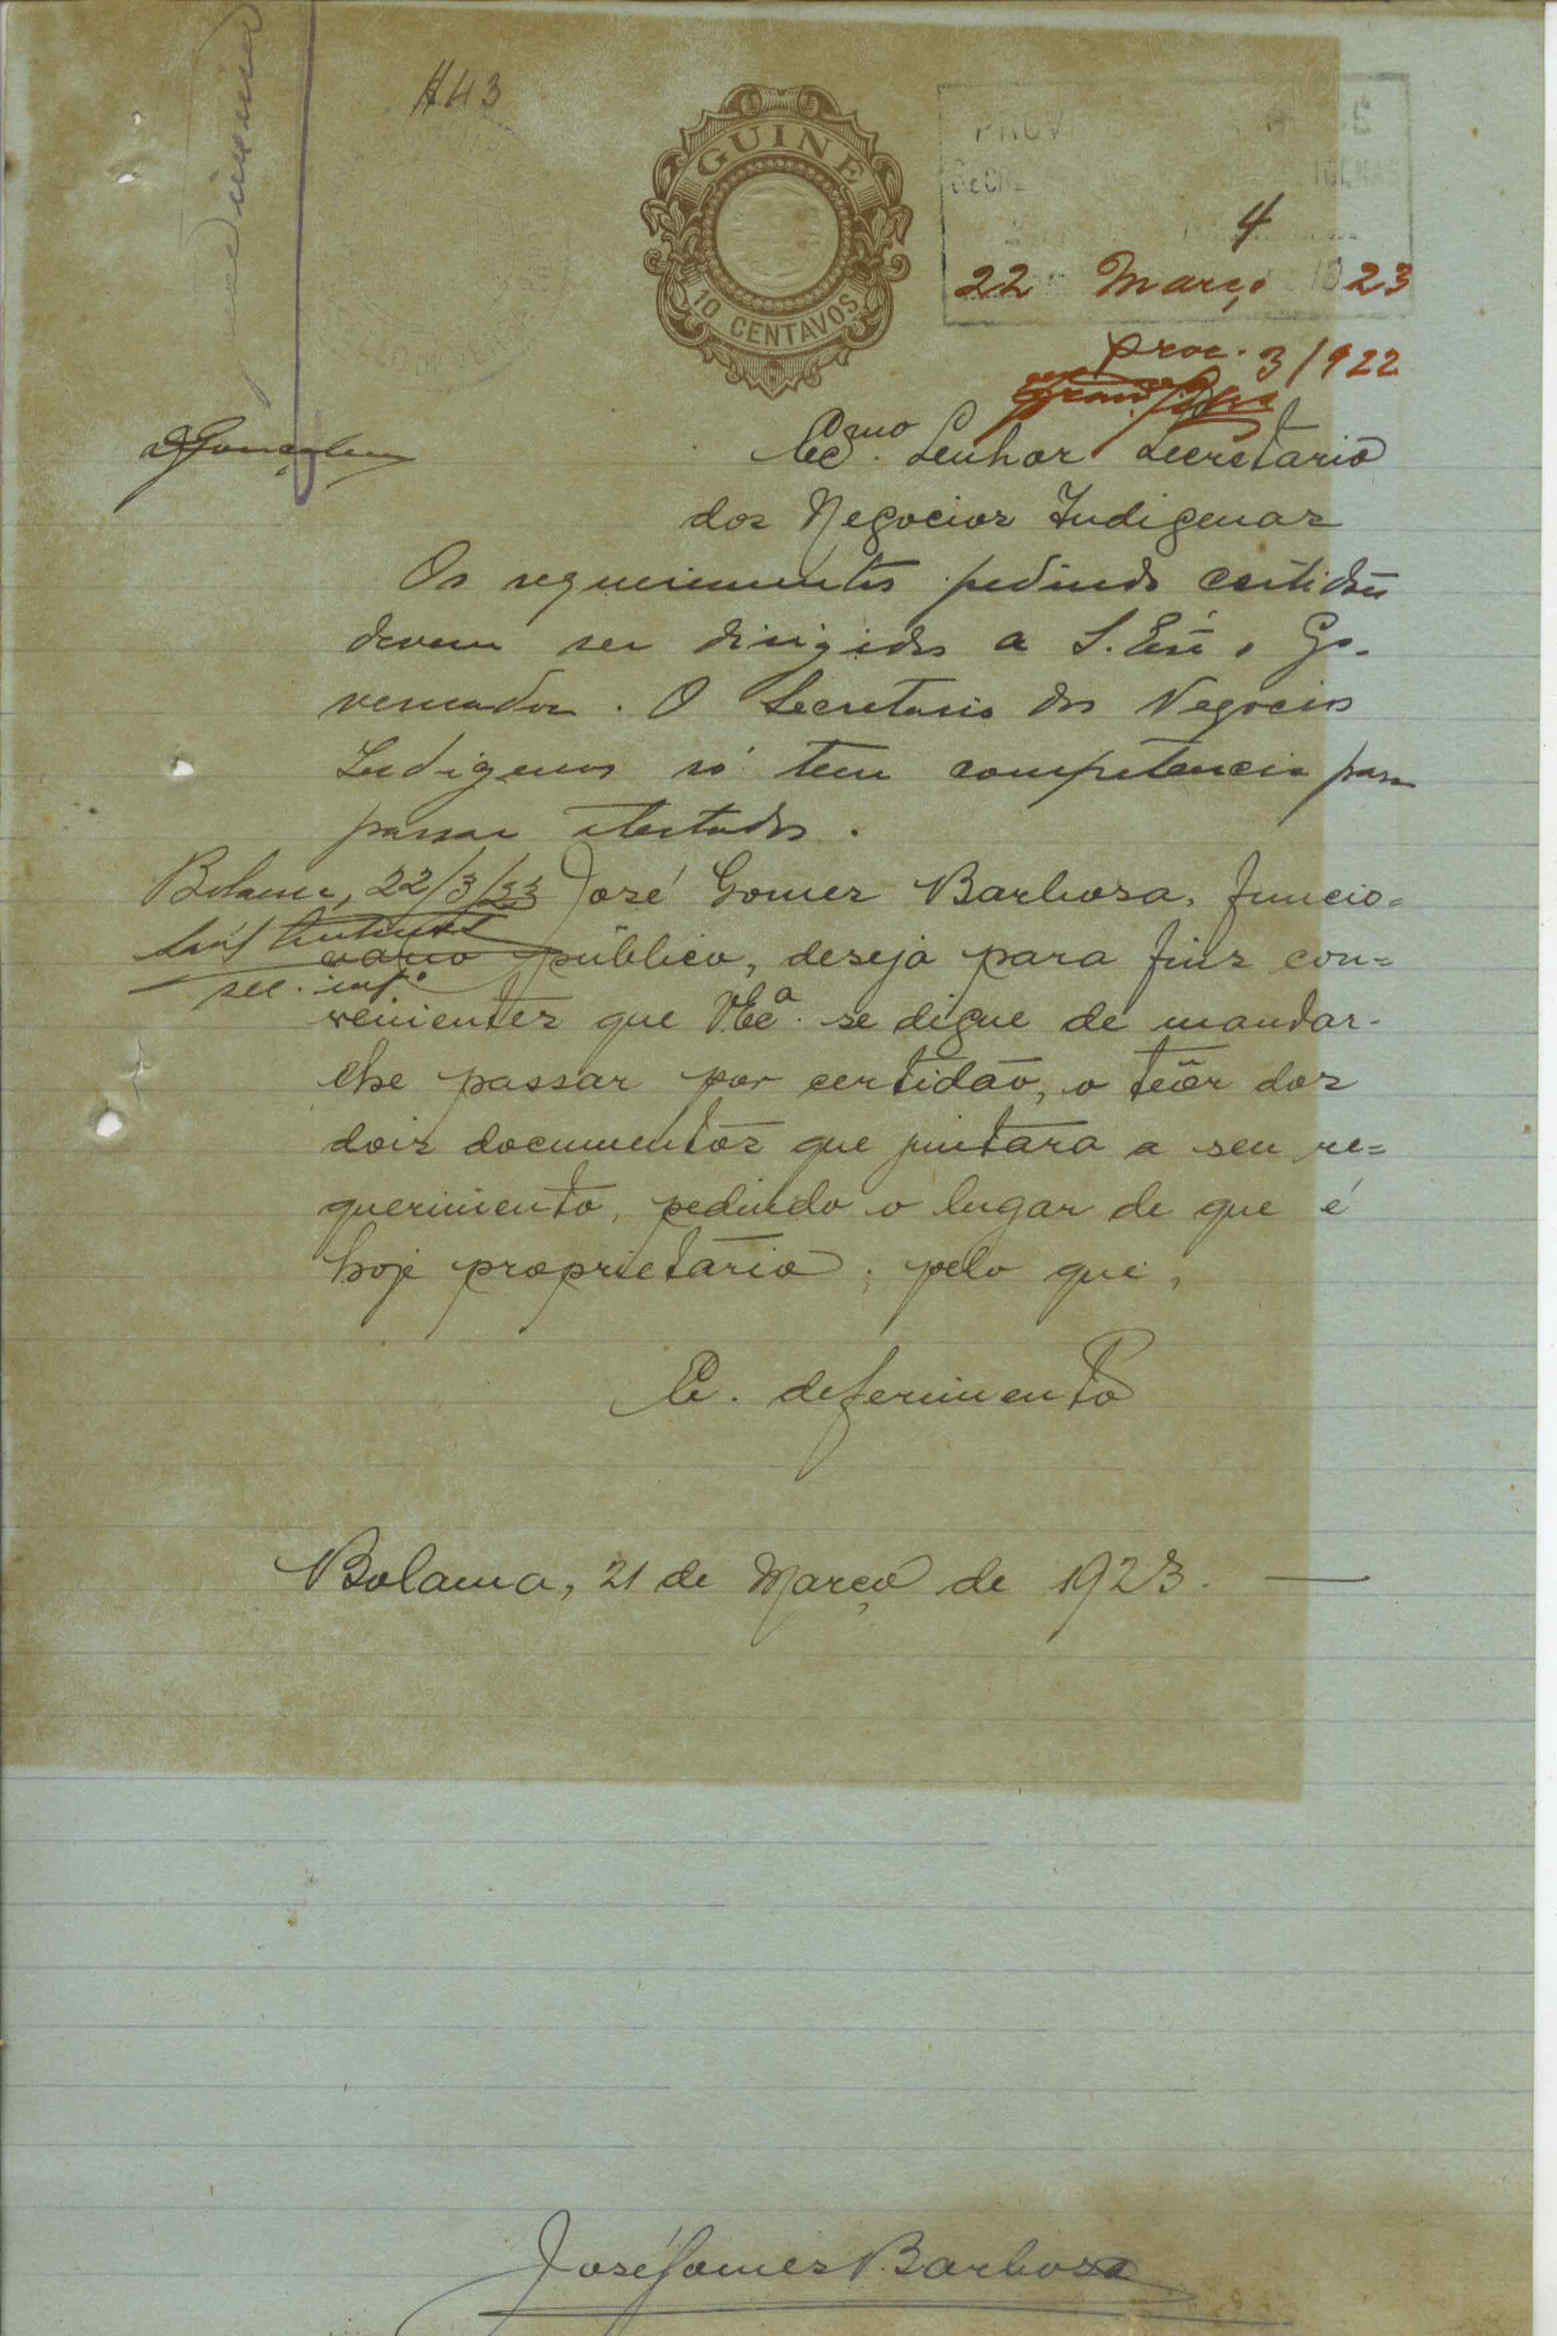 443
GUINE
10 CENTAVOS
4
22 Março 1923
proc. 3/922
Ecmo. Senhor Secretario
dos Negocios Indigenas
Os requerimentos pedindo certidões
devem ser dirigidos a S. Exª o Go-
vernador. O Secretario dos Negocios
Indigenas só tem competencia para
passar atestados.
Bolama, 22/3/23
sec. intº
José Gomes Barbosa, funcio=
nario público, deseja para fins con=
venientes que V. Ecª. se digne de mandar-
lhe passar por certidão, o teôr dos
dois documentos que juntara a seu re=
querimento, pedindo o lugar de que é
hoje proprietario; pelo que,
E. deferimento
Bolama, 21 de Março de 1923.
José Gomes Barbosa